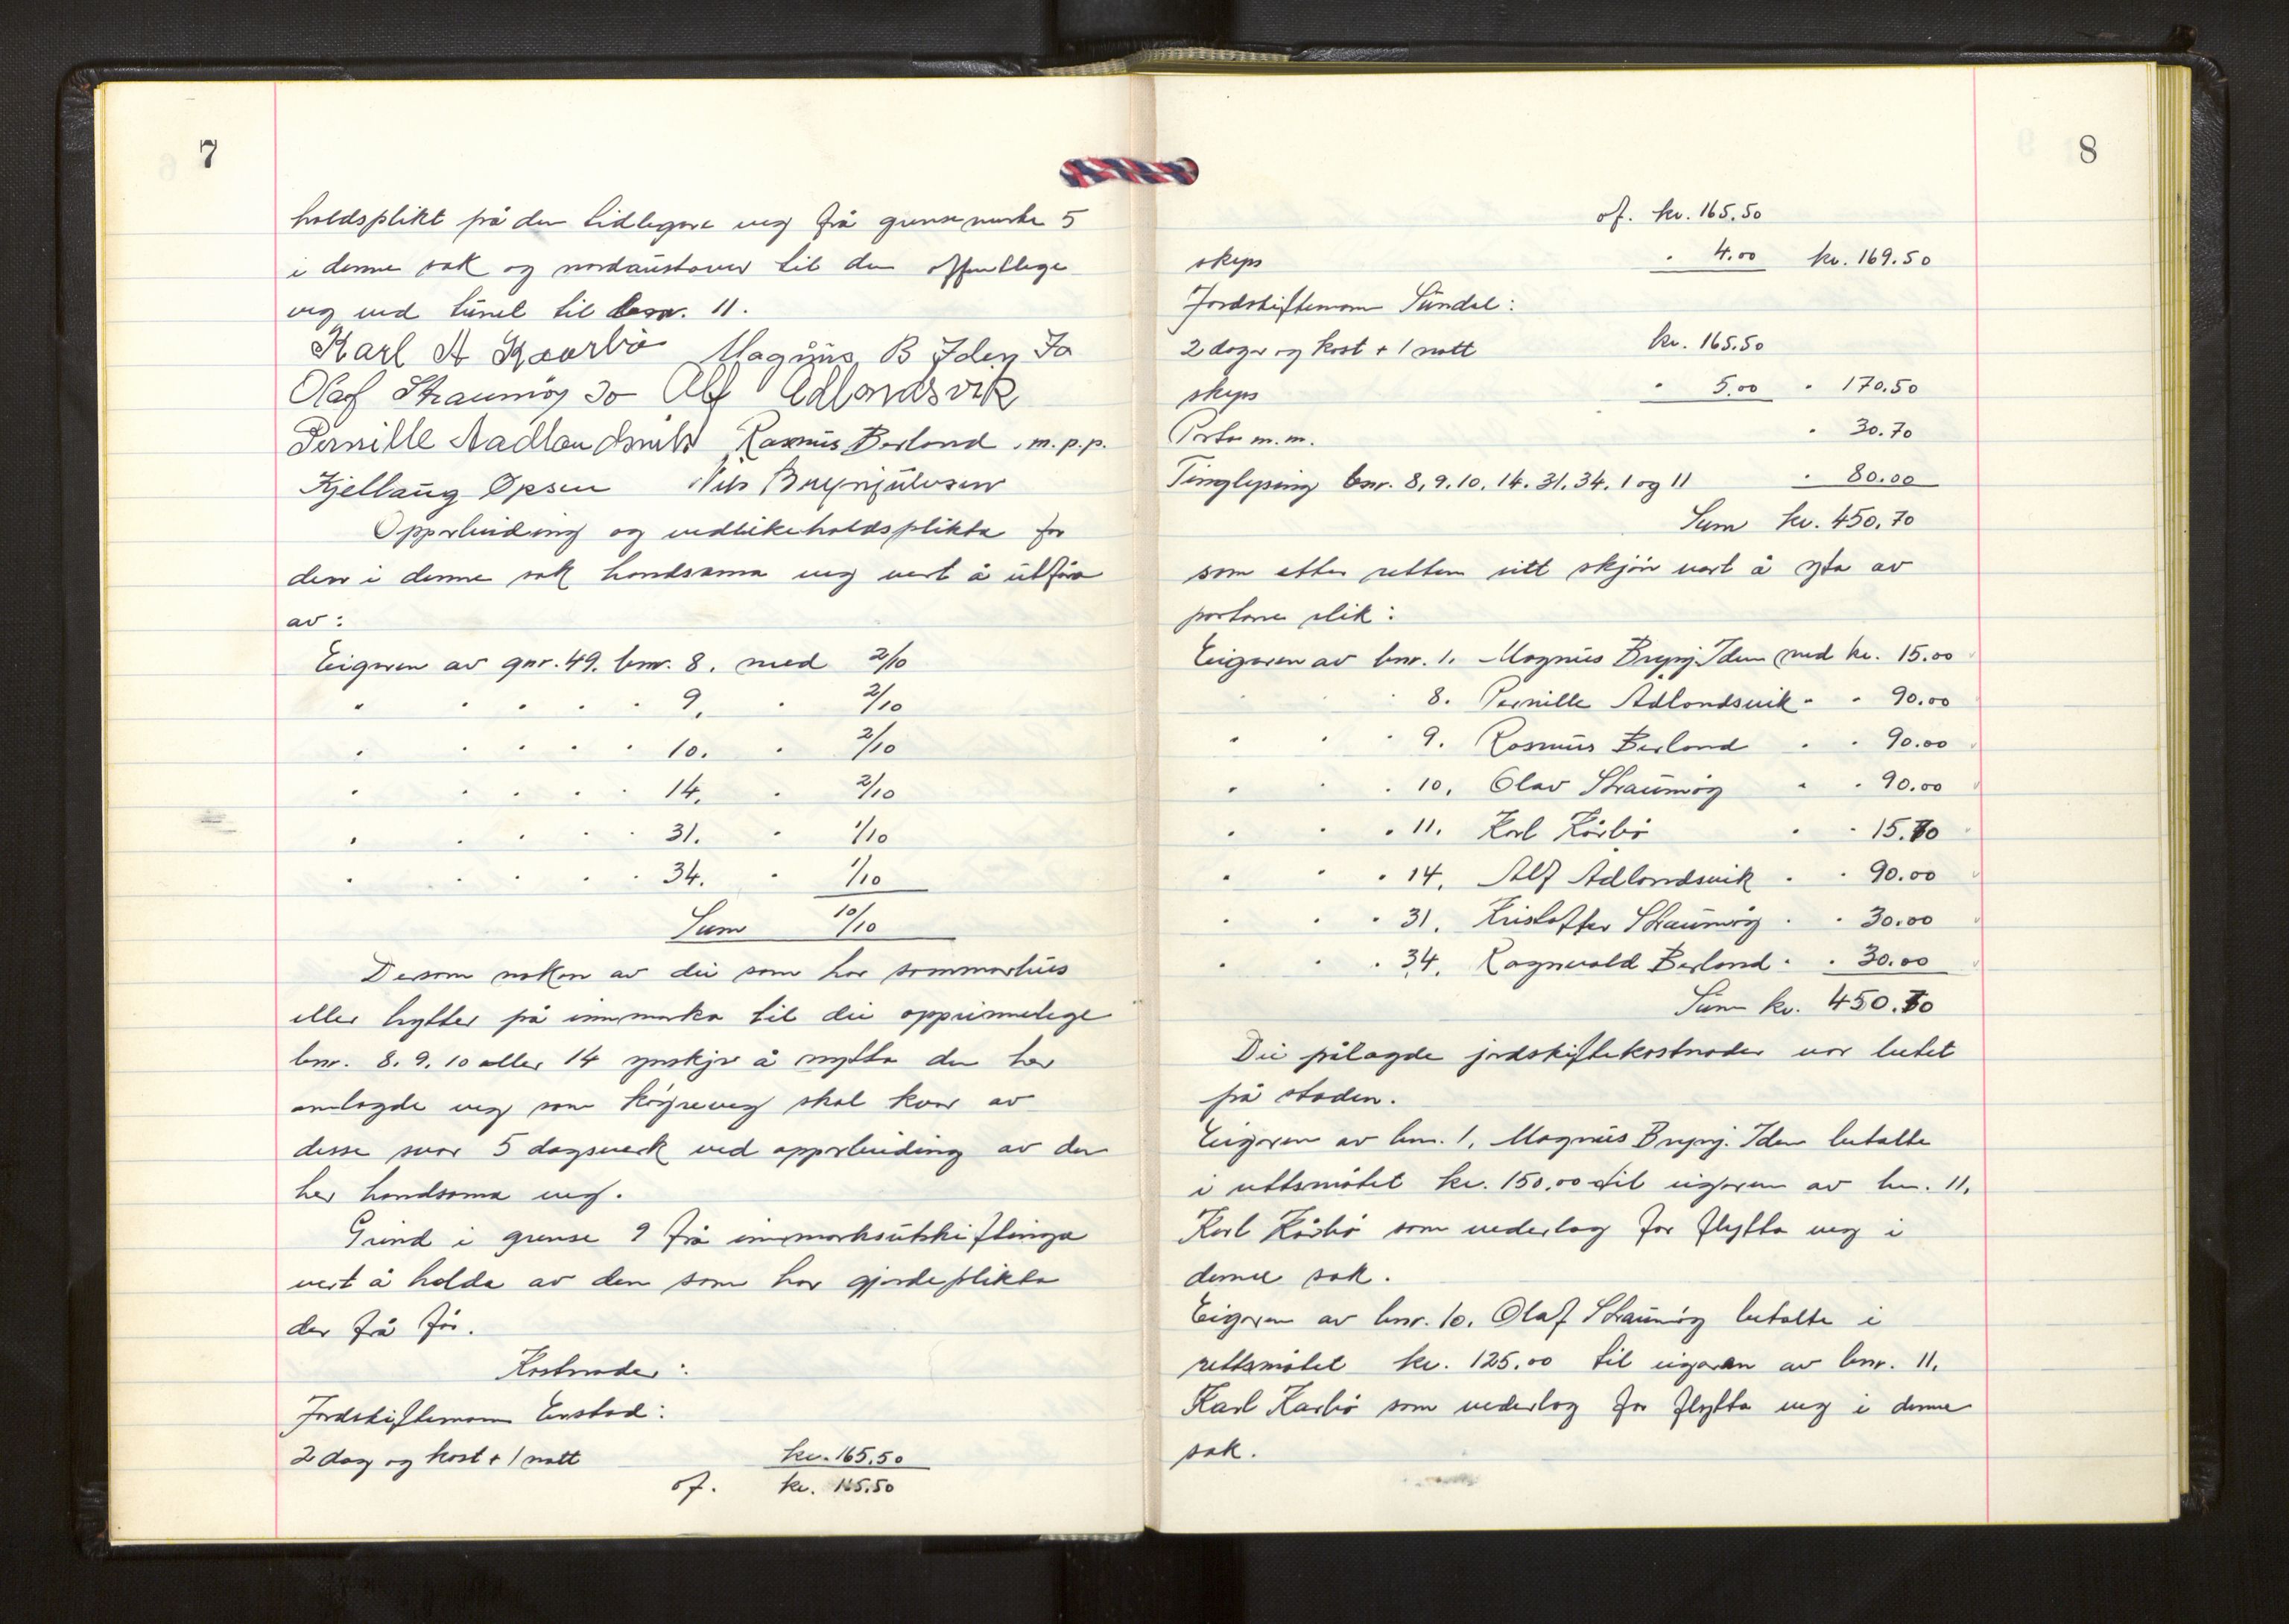 7
holdsplikt på den tidlegare veg frå grensemerke 5
i denne sak og nordaustover til den offentlege
veg ved tunet til bnr. 11.
Karl A Kaarbö Magnus B Iden Jo
Olaf Straumöy Jo Alf Adlandsvik
Pernille Aadlandsvik Rasmus Berland . m.p.p.
Kjellaug Opsen Nils Brynjulvsen
Opparbeiding og vedlikeholdsplikta for
den i denne sak handsama veg vert å utföra
av:
Eigaren av gnr. 49. bnr. 8. med 2/10
" " " " " 9. " 2/10
" " " " " 10. " 2/10
" " " " " 14. " 2/10
" " " " " 31. " 1/10
" " " " " 34. " 1/10
Sum 10/10
Dersom nokon av dei som har sommarhus
eller hytter på innmarka til dei opprinnelege
bnr. 8. 9. 10 eller 14 ynskjer å nytta den her
omlagde veg som köyreveg skal kvar av
desse svar 5 dagsverk ved opparbeiding av den
her handsama veg.
Grind i grense 9 frå innmarksutskiftinga
vert å halda av den som har gjerdeplikta
der frå för.
Kostnader:
Jordskiftemann Enstad:
2 dag og kost + 1 natt kr. 165.50
of. kr. 165.50
8
of. kr. 165.50
skyss " 4.00 kr. 169.50
Jordskiftemann Sundal:
2 dagar og kost + 1 natt kr. 165.50
skyss " 5.00 " 170.50
Porto m.m. " 30.70
Tinglysing bnr. 8, 9. 10. 14. 31. 34. 1 og 11 " 80.00
Sum kr. 450.70
som etter retten sitt skjön vert å yta av
partane slik:
Eigaren av bnr. 1. Magnus Brynj. Iden med kr. 15.00
" 8. Pernille Adlandsvik " " 90.00
" " " 9. Rasmus Berland " " 90.00
" " " 10. Olav Straumöy " " 90.00
" " " 11. Karl Kårbö " " 15.70
" " " 14. Alf Adlandsvik " " 90.00
" " " 31. Kristoffer Straumöy " " 30.00
" " " 34. Ragnvald Berland " " 30.00
Sum kr. 450.70
Dei pålagde jordskiftekostnader var betalt
på staden.
Eigaren av bnr. 1. Magnus Brynj. Iden betalte
i rettsmötet kr. 150.00 til eigaren av bnr. 11.
Karl Kårbö som vederlag for flytta veg i
denne sak.
Eigaren av bnr. 10. Olaf Straumöy betalte i
rettsmötet kr. 125.00 til eigaren av bnr. 11.
Karl Karbö som vederlag for flytta veg i denne
sak.